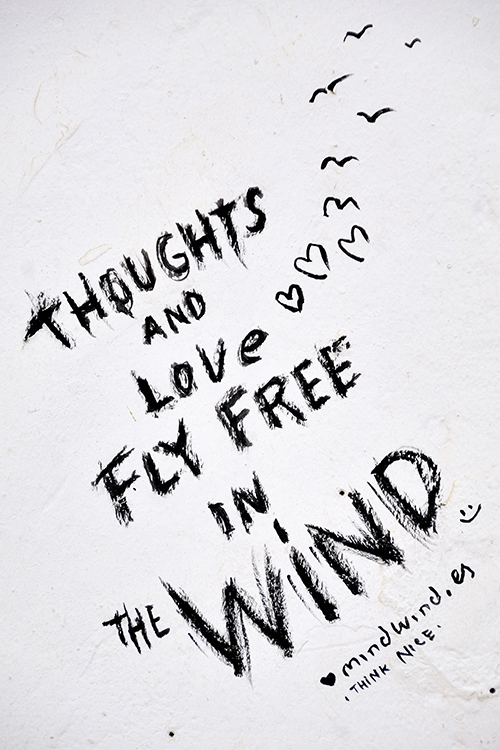 THOUGHTS
AND
LOVe
FLY FREE
IN
THE WiND
mindwind.es
.THINK NICE.